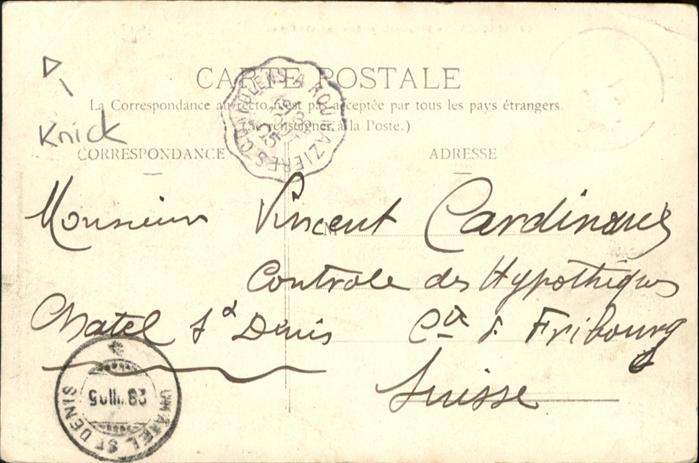 CARTE POSTALE
La Correspondance au recto n'est pas acceptée par tous les pays étrangers.
(Se renseigner à la Poste.)
Knick
CORRESPONDANCE
ADRESSE
Monsieur Vincent Cardinaux
Controle des Hypothèques
Chatel St Denis Cton d. Fribourg
Suisse
CHATEL ST DENIS
28 VII 05